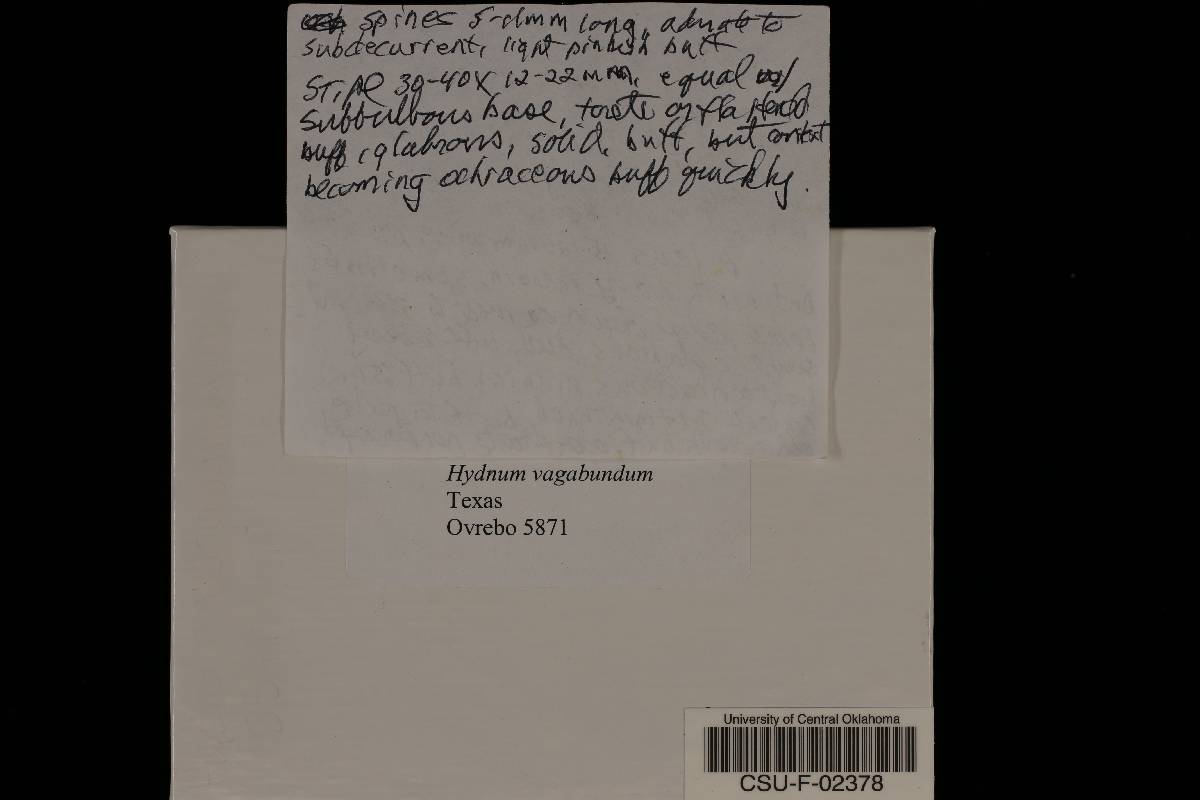 spines 5-6mm long, adnate to
subdecurrent, light pinkish buff
STIPE 30-40 X 12-22 mm, equal w/
subbulbous base, terete or flattened
buff, glabrous, solid, buff, but context
becoming ochraceous buff quickly.
Hydnum vagabundum
Texas
Ovrebo 5871
University of Central Oklahoma
CSU-F-02378